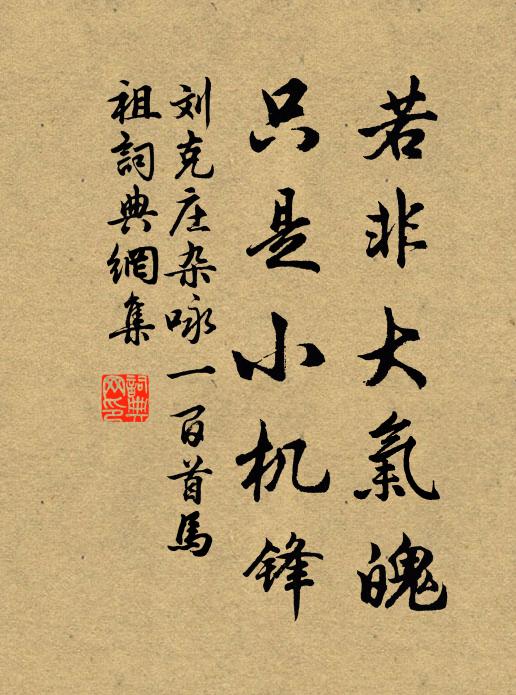 若非大氣魄
只是小机锋
刘克庄杂咏一百首馬
祖詞典網集
詞典
网印